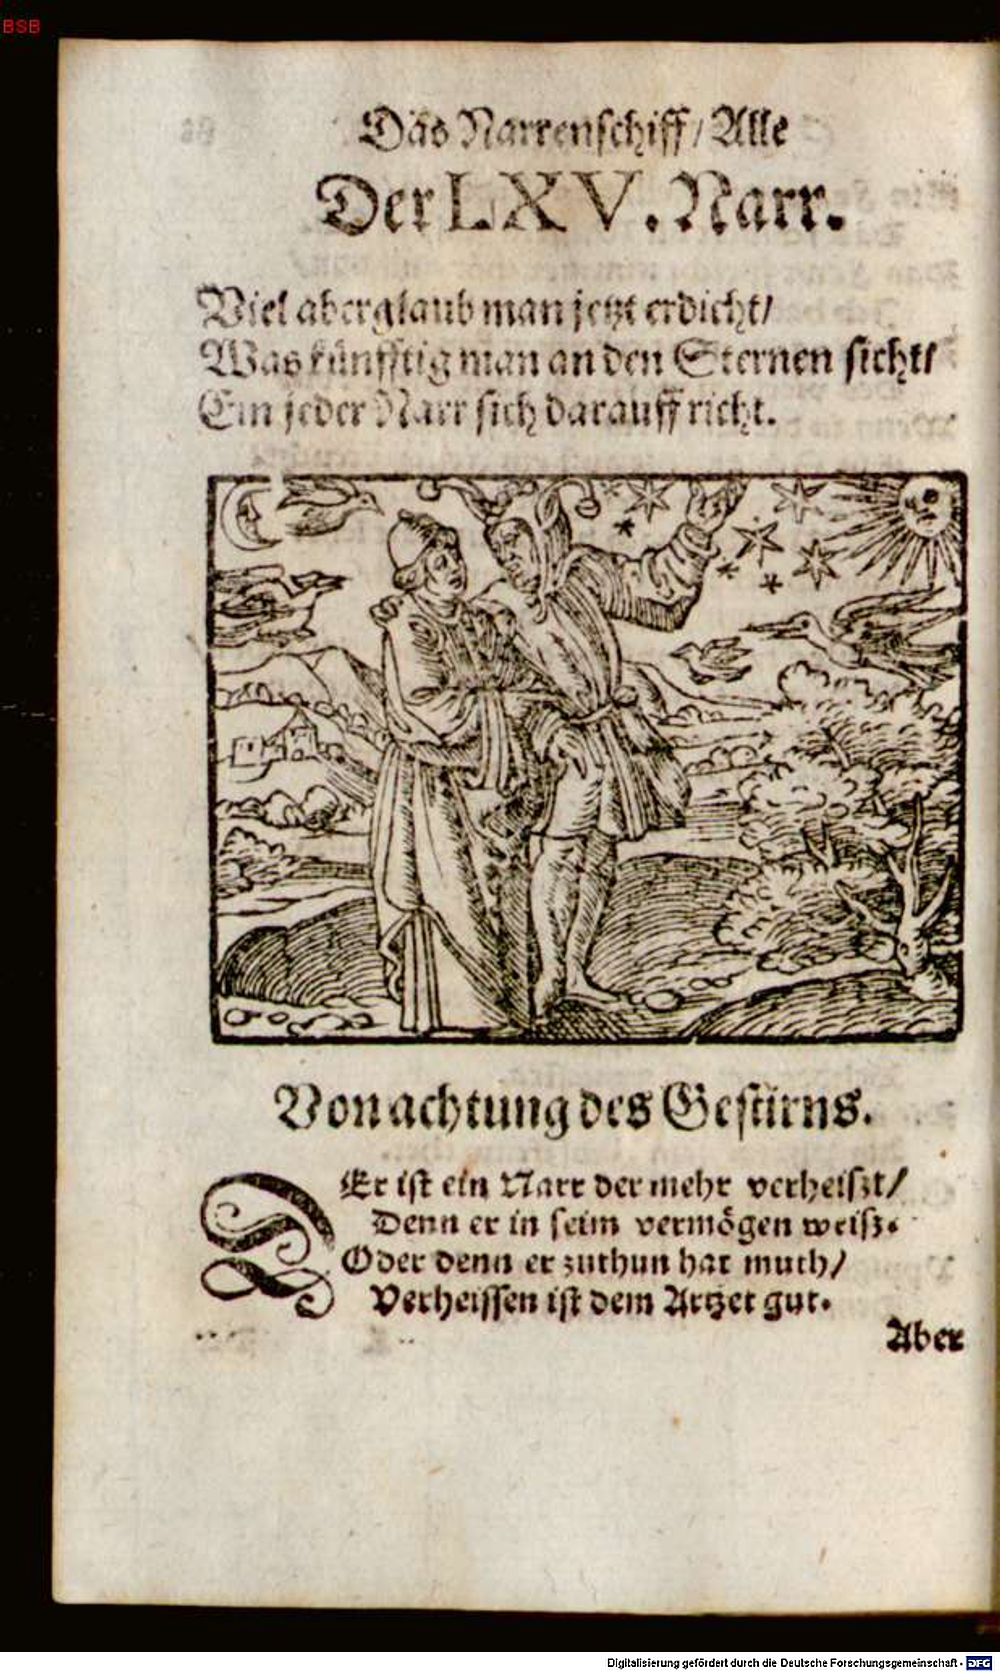 BSB
Das Narrenschiff / Alle
Der LXV. Narr.
Viel aberglaub man jetzt erdicht /
Was künfftig man an den Sternen sicht /
Ein jeder Narr sich darauff richt.
Von achtung des Gestirns.
DEr ist ein Narr der mehr verheißt /
Denn er in seim vermögen weiß.
Oder denn er zuthun hat muth /
Verheissen ist dem Artzet gut.
Aber
Digitalisierung gefördert durch die Deutsche Forschungsgemeinschaft - DFG